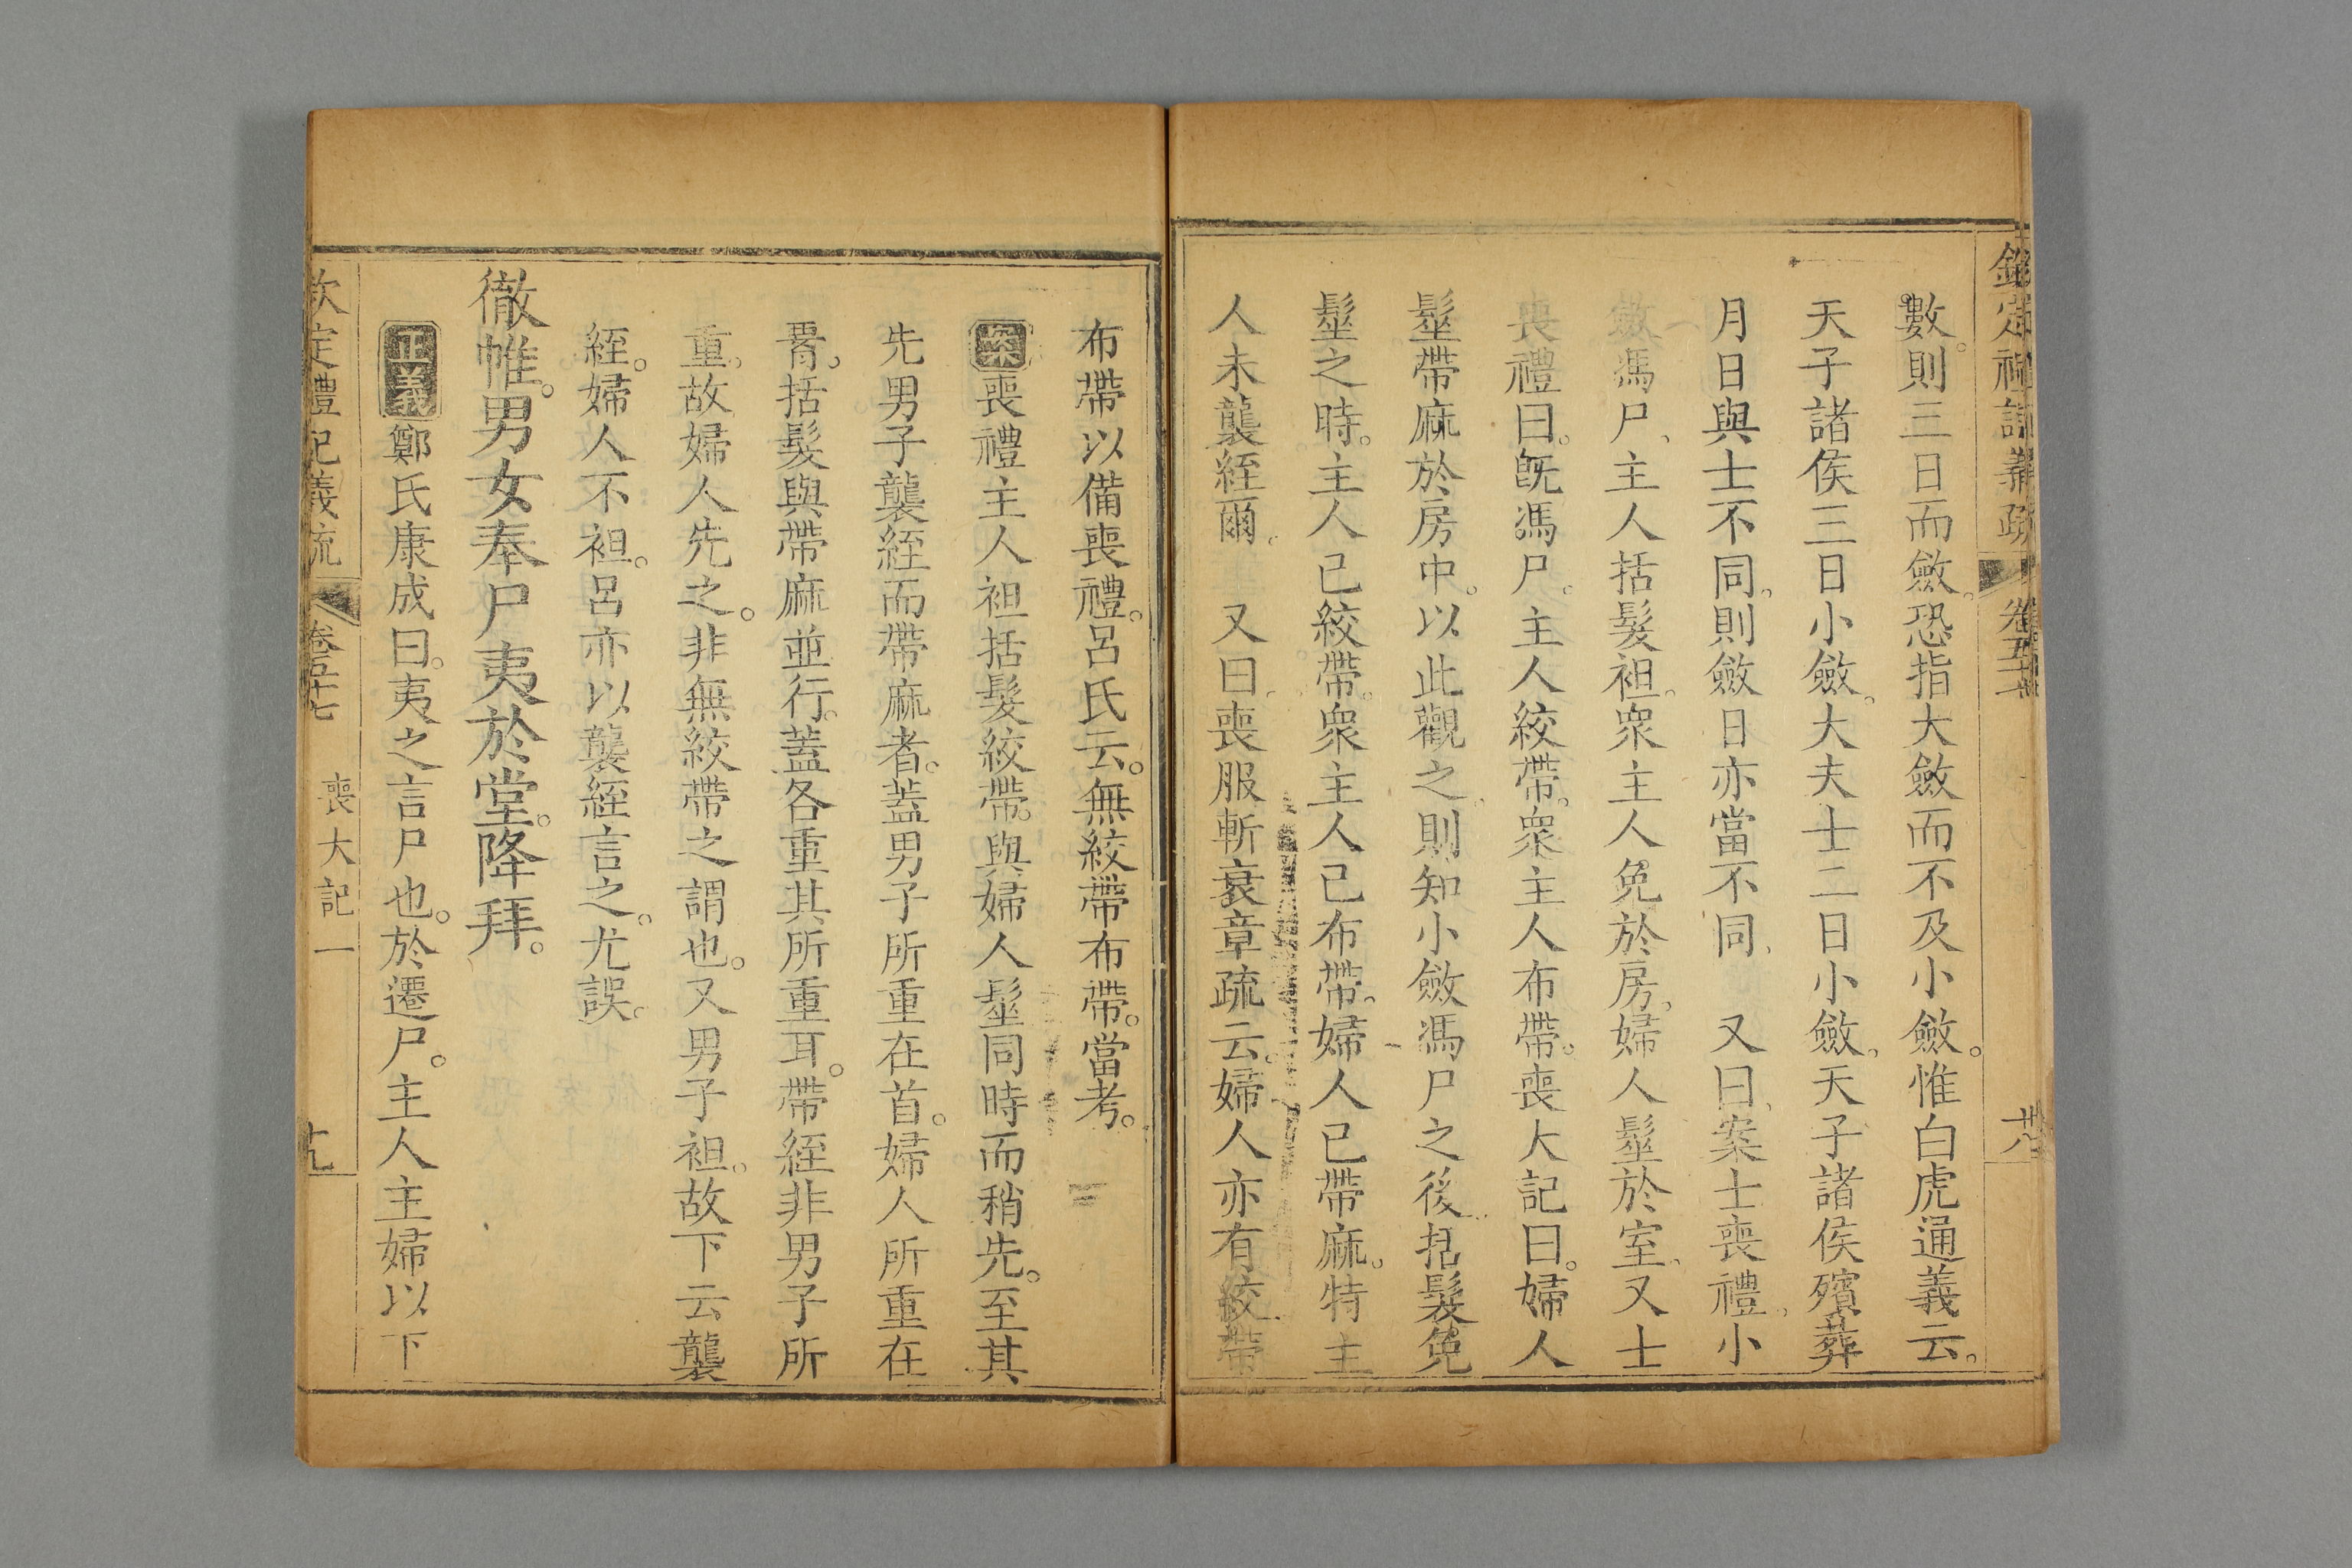 欽定禮記義疏 卷五十七 十八
數。則三日而斂。恐指大斂而不及小斂。惟白虎通義云。
天子諸侯三日小斂。大夫士二日小斂。天子諸侯殯葬
月日與士不同。則斂日亦當不同、 又曰、案士喪禮。小
斂馮尸、主人括髮袒。眾主人免於房。婦人髽於室、又士
喪禮曰。旣馮尸。主人絞帶。衆主人布帶。喪大記曰。婦人
髽帶麻於房中。以此觀之、則知小斂馮尸之後、括髮免
髽之時。主人已絞帶。衆主人已布帶。婦人已帶麻。特主
人未襲絰爾。 又曰。喪服斬衰章疏云。婦人亦有絞帶
布帶以備喪禮。呂氏云。無絞帶布帶。當考。
案喪禮主人袒括髮絞帶。與婦人髽同時而稍先。至其
先男子襲絰而帶麻者。蓋男子所重在首。婦人所重在
𦝫。括髮與帶麻並行。蓋各重其所重耳。帶絰非男子所
重。故婦人先之。非無絞帶之謂也。又男子袒。故下云襲
絰。婦人不袒。呂亦以襲絰言之。尤誤。
徹帷。男女奉尸夷於堂。降拜。
正義鄭氏康成曰。夷之言尸也。於遷尸。主人主婦以下
欽定禮記義疏 卷五十七 喪大記一 十九